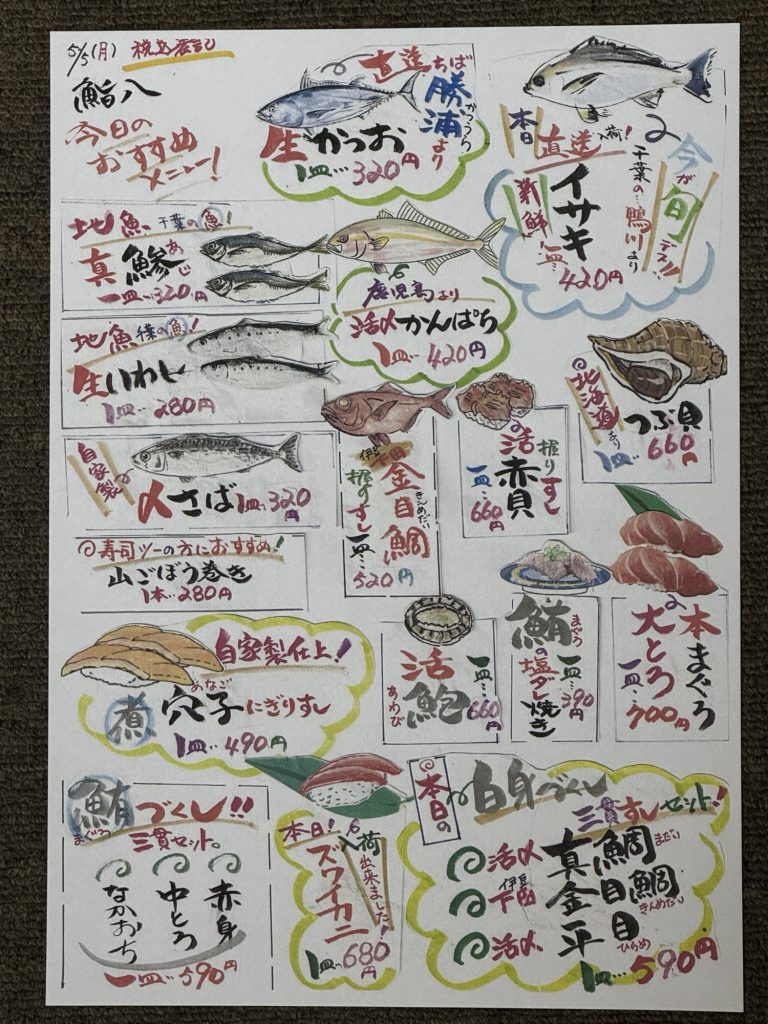 5/5(月) 税込表記
鮨八
今日の
おすすめ
メニュー!
直送 ちば
勝浦より
かつうら
生かつお
1皿…320円
本日 直送 入荷!
千葉の…鴨川より
今が旬デス!!
新鮮!
イサキ
一皿…420円
地魚 千葉の魚!
真鯵
あじ
一皿…320円
鹿児島より
活〆かんぱち
1皿…420円
地魚 千葉の魚!
生いわし
1皿…280円
北海道より
つぶ貝
1皿…660円
自家製
〆さば 1皿…320円
伊豆
下田
金目鯛
きんめだい
握りすし
一皿…520円
握りすし
活赤貝
一皿…660円
寿司ツーの方におすすめ!
山ごぼう巻き
1本…280円
自家製仕上!
煮穴子にぎりすし
あなご
1皿…490円
活鮑
あわび
一皿…660円
鮪の塩ダレ焼き
まぐろ
一皿…390円
本まぐろ
大とろ
一皿…700円
鮪づくし!!
まぐろ
三貫セット。
赤身
中とろ
なかおち
一皿…590円
本日!
入荷出来ました!
ズワイカニ
1皿…680円
本日の
白身づくし
三貫すしセット!
活〆 真鯛
まだい
伊豆
下田 金目鯛
きんめだい
活〆 平目
ひらめ
1皿…590円